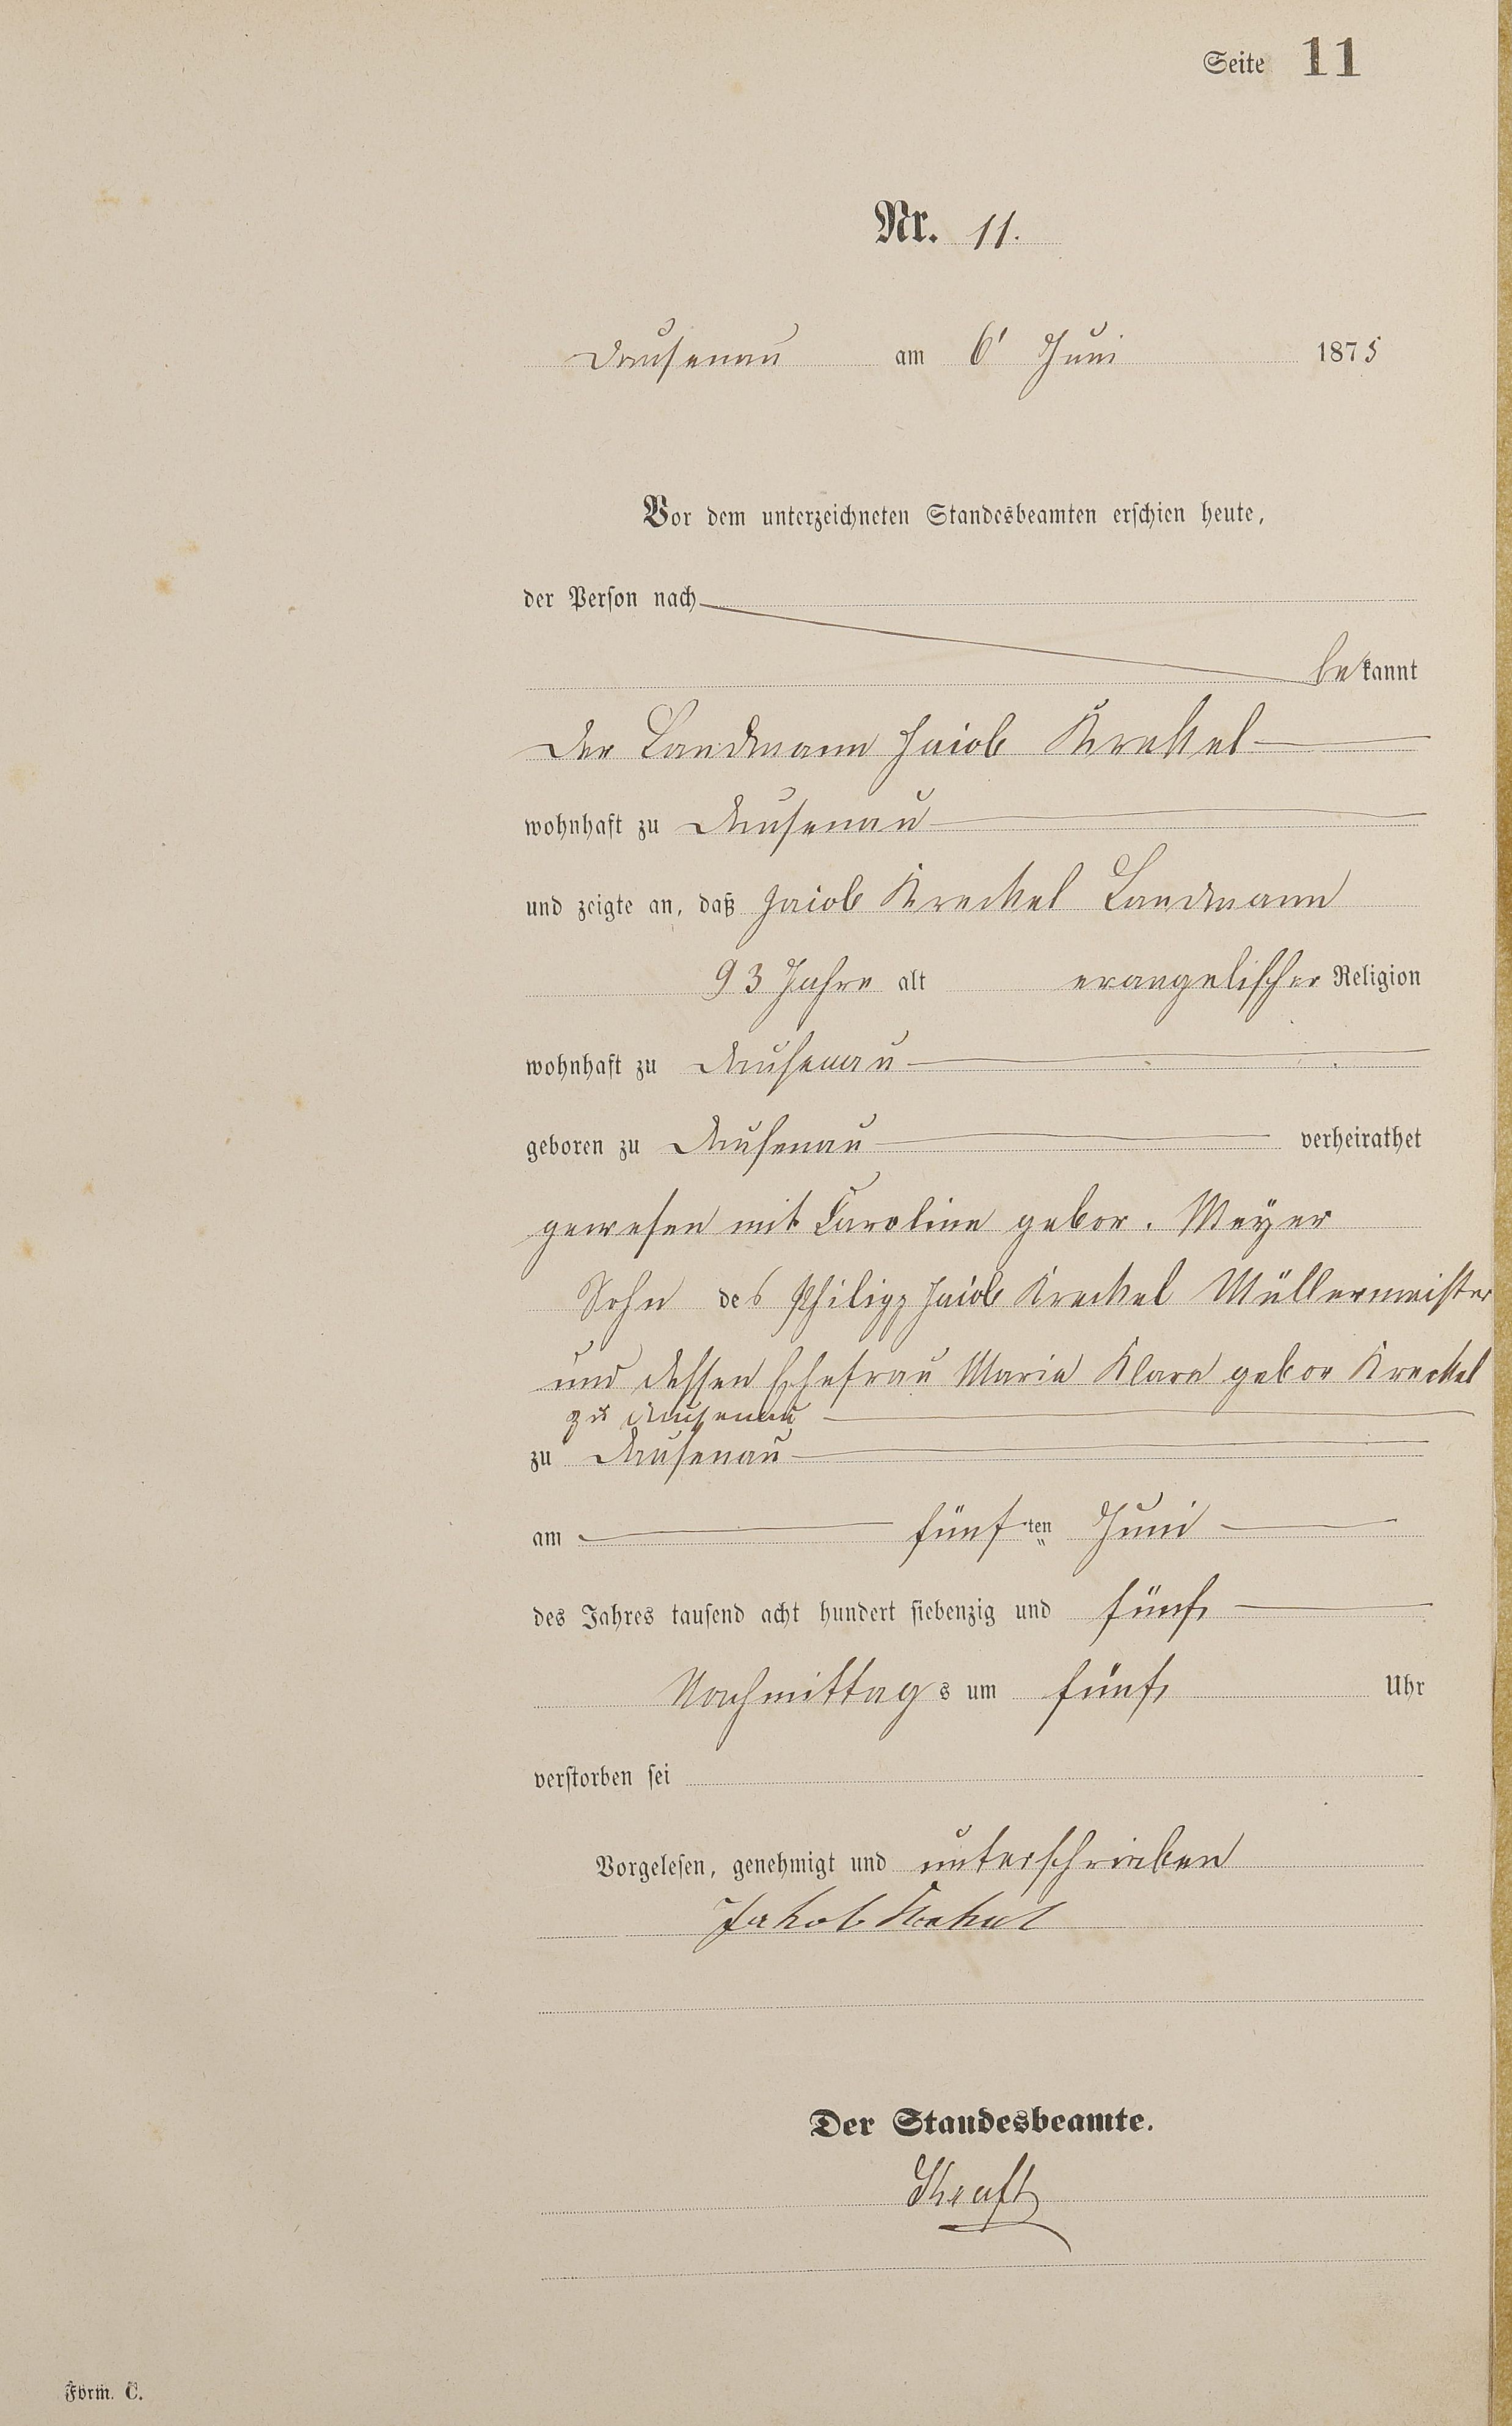 Seite 11
Nr. 11.
Dausenau am 6' Juni 1875
Vor dem unterzeichneten Standesbeamten erschien heute,
der Person nach
bekannt
der Landmann Jacob Kreckel
wohnhaft zu Dausenau
und zeigte an, daß Jacob Kreckel Landmann
93 Jahre alt evangelischer Religion
wohnhaft zu Dausenau
geboren zu Dausenau verheirathet
gewesen mit Caroline gebor. Meyer
Sohn des Philipp Jacob Kreckel Müllermeister
und dessen Ehefrau Maria Klara gebor Kreckel
zu Dausenau
zu Dausenau
am fünften Juni
des Jahres tausend acht hundert siebenzig und fünf
Nachmittags um fünf Uhr
verstorben sei
Vorgelesen, genehmigt und unterschrieben
Jakob Krekel
Der Standesbeamte.
Kraft
Form. C.